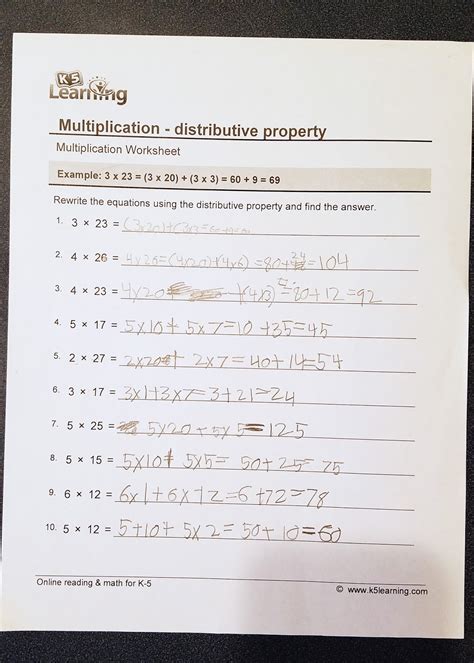 K5 Learning
Multiplication - distributive property
Multiplication Worksheet
Example: 3 x 23 = (3 x 20) + (3 x 3) = 60 + 9 = 69
Rewrite the equations using the distributive property and find the answer.
1. 3 × 23 = (3x20)+(3x3=60+9=
2. 4 × 26 = 4x26=(4x20)+(4x6)=80+24=104
3. 4 × 23 = 4x20 + (4x3)=80+12=92
4. 5 × 17 = 5x10+5x7=10+35=45
5. 2 × 27 = 2x20+2x7=40+14=54
6. 3 × 17 = 3x1+3x7=3+21=24
7. 5 × 25 = 5x20+5x5=125
8. 5 × 15 = 5x10+5x5=50+25=75
9. 6 × 12 = 6x1+6x12=6+72=78
10. 5 × 12 = 5+10+5x2=50+10=60
Online reading & math for K-5
© www.k5learning.com